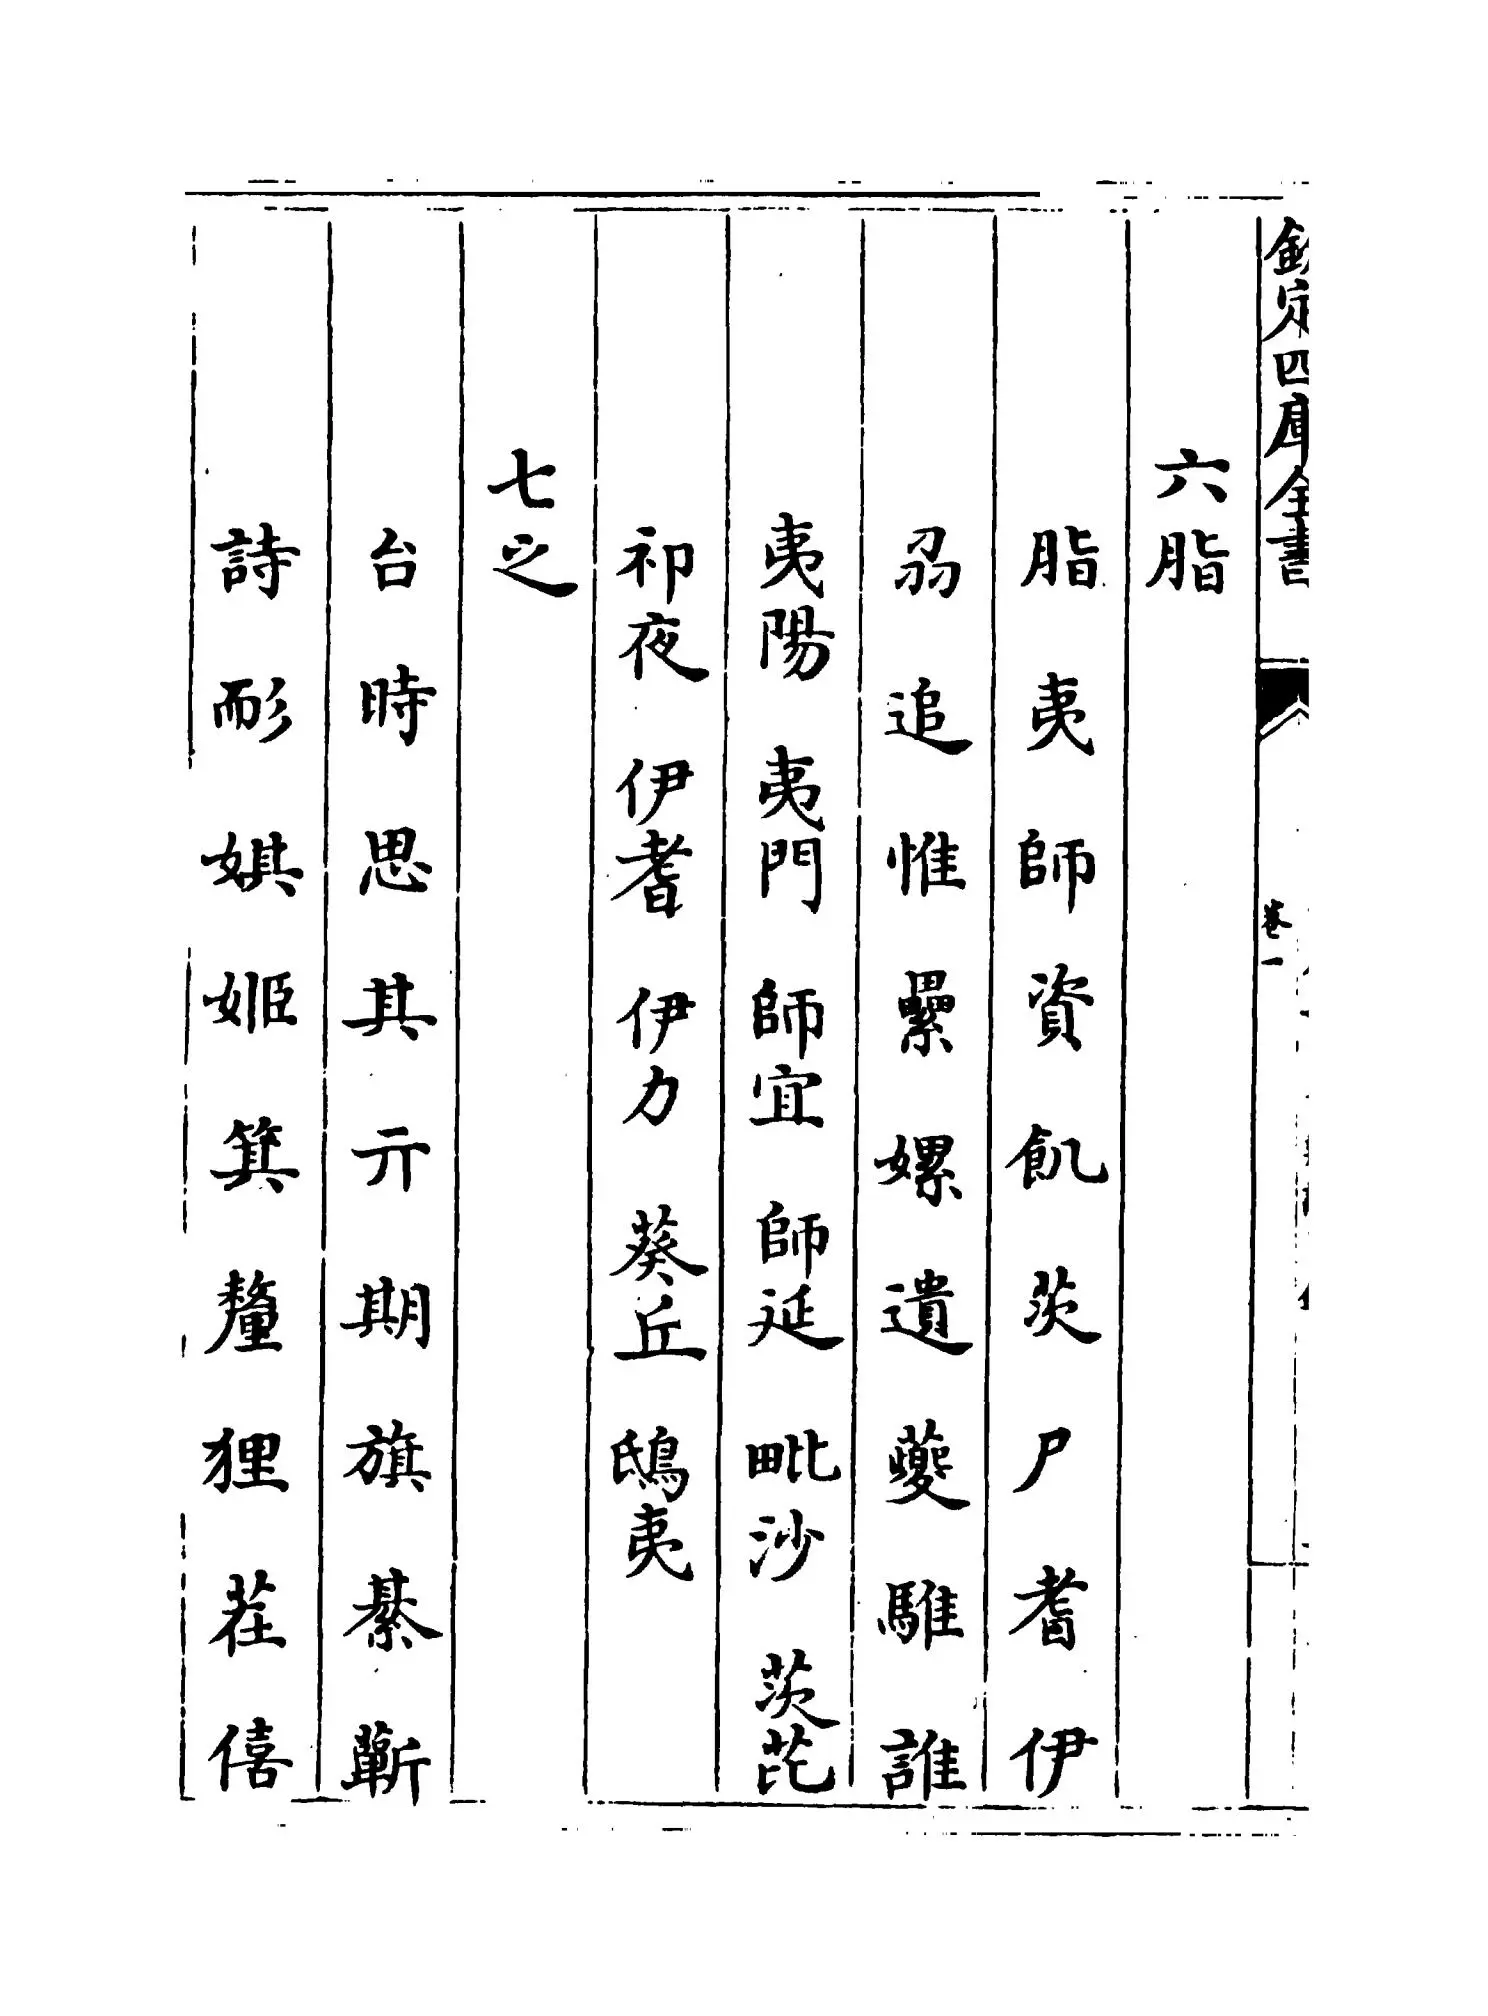 欽定四庫全書
卷一
六脂
脂 夷 師 資 飢 茨 尸 耆 伊
刕 追 惟 纍 嫘 遺 夔 騅 誰
夷陽 夷門 師宜 師延 毗沙 茨芘
祁夜 伊耆 伊力 葵丘 鴟夷
七之
台 時 思 其 亓 期 旗 綦 蘄
詩 耏 娸 姬 箕 釐 狸 茬 僖